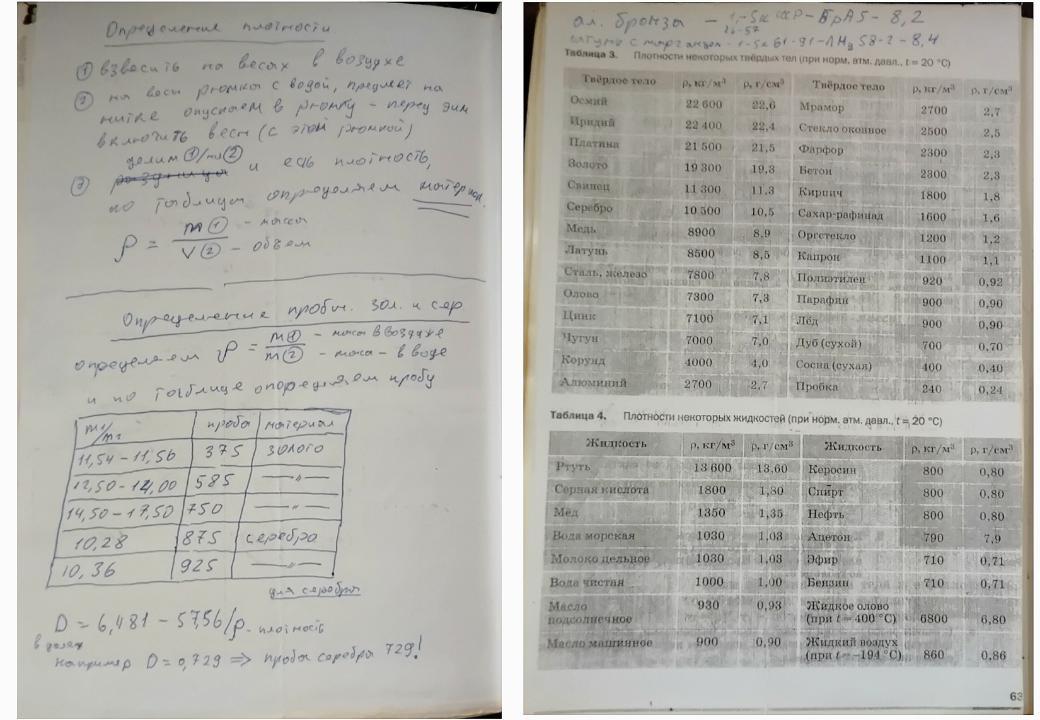 Определение плотности
① взвесить на весах в воздухе
② на весы рюмка с водой, предмет на
нитке опускаем в рюмку – перед этим
включить весы (с этой рюмкой)
делим ①/на②
③ и есть плотность,
по таблицам определяем материал.
ρ = m① – масса
V② – объем
Определение пробы. зол. и сер
определяем ρ = m① – масса в воздухе
m② – масса – в воде
и по таблице определяем пробу
m₁/m₂ проба материал
11,54 – 11,56 375 золото
12,50 – 14,00 585 —"—
14,50 – 17,50 750 —"—
10,28 875 серебро
10,36 925 —"—
для серебра
D = 6,481 – 57,56/ρ - плотность
в долях
Например D = 0,729 ⇒ проба серебра 729!
ал. бронза – БрА5 – 8,2
Таблица 3. Плотности некоторых твёрдых тел (при норм. атм. давл., t = 20 °C)
Твёрдое тело ρ, кг/м³ ρ, г/см³ Твёрдое тело ρ, кг/м³ ρ, г/см³
Осмий 22 600 22,6 Мрамор 2700 2,7
Иридий 22 400 22,4 Стекло оконное 2500 2,5
Платина 21 500 21,5 Фарфор 2300 2,3
Золото 19 300 19,3 Бетон 2300 2,3
Свинец 11 300 11,3 Кирпич 1800 1,8
Серебро 10 500 10,5 Сахар-рафинад 1600 1,6
Медь 8900 8,9 Оргстекло 1200 1,2
Латунь 8500 8,5 Капрон 1100 1,1
Сталь, железо 7800 7,8 Полиэтилен 920 0,92
Олово 7300 7,3 Парафин 900 0,90
Цинк 7100 7,1 Лёд 900 0,90
Чугун 7000 7,0 Дуб (сухой) 700 0,70
Корунд 4000 4,0 Сосна (сухая) 400 0,40
Алюминий 2700 2,7 Пробка 240 0,24
Таблица 4. Плотности некоторых жидкостей (при норм. атм. давл., t = 20 °C)
Жидкость ρ, кг/м³ ρ, г/см³ Жидкость ρ, кг/м³ ρ, г/см³
Ртуть 13 600 13,60 Керосин 800 0,80
Серная кислота 1800 1,80 Спирт 800 0,80
Мёд 1350 1,35 Нефть 800 0,80
Вода морская 1030 1,03 Ацетон 790 7,9
Молоко цельное 1030 1,03 Эфир 710 0,71
Вода чистая 1000 1,00 Бензин 710 0,71
Масло подсолнечное 930 0,93 Жидкое олово (при t = 400 °C) 6800 6,80
Масло машинное 900 0,90 Жидкий воздух (при t = –194 °C) 860 0,86
63